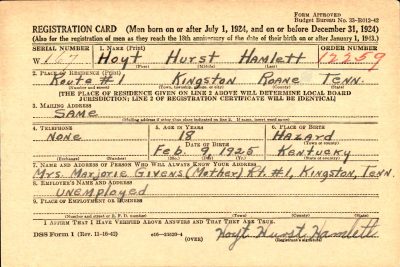 Form Approved
Budget Bureau No. 33-R012-42
REGISTRATION CARD (Men born on or after July 1, 1924, and on or before December 31, 1924)
(Also for the registration of men as they reach the 18th anniversary of the date of their birth on or after January 1, 1943.)
SERIAL NUMBER 1. NAME (Print) ORDER NUMBER
W Hoyt Hurst Hamlett 12259
(First) (Middle) (Last)
2. PLACE OF RESIDENCE (Print)
Route #1 Kingston Roane Tenn.
(Number and street) (Town, township, village, or city) (County) (State)
[THE PLACE OF RESIDENCE GIVEN ON LINE 2 ABOVE WILL DETERMINE LOCAL BOARD
JURISDICTION; LINE 2 OF REGISTRATION CERTIFICATE WILL BE IDENTICAL]
3. MAILING ADDRESS
SAME
[Mailing address if other than place indicated on line 2. If same, insert word same]
4. TELEPHONE 5. AGE IN YEARS 6. PLACE OF BIRTH
None 18 Hazard
DATE OF BIRTH (Town or county)
Feb. 9, 1925 Kentucky
(Exchange) (Number) (Mo.) (Day) (Yr.) (State or country)
7. NAME AND ADDRESS OF PERSON WHO WILL ALWAYS KNOW YOUR ADDRESS
Mrs. Marjorie Givens (Mother) Rt. #1, Kingston, Tenn.
8. EMPLOYER'S NAME AND ADDRESS
Unemployed
9. PLACE OF EMPLOYMENT OR BUSINESS
(Number and street or R. F. D. number) (Town) (County) (State)
I AFFIRM THAT I HAVE VERIFIED ABOVE ANSWERS AND THAT THEY ARE TRUE.
DSS Form 1 (Rev. 11-16-42) (OVER) Hoyt Hurst Hamlett
(Registrant's signature)